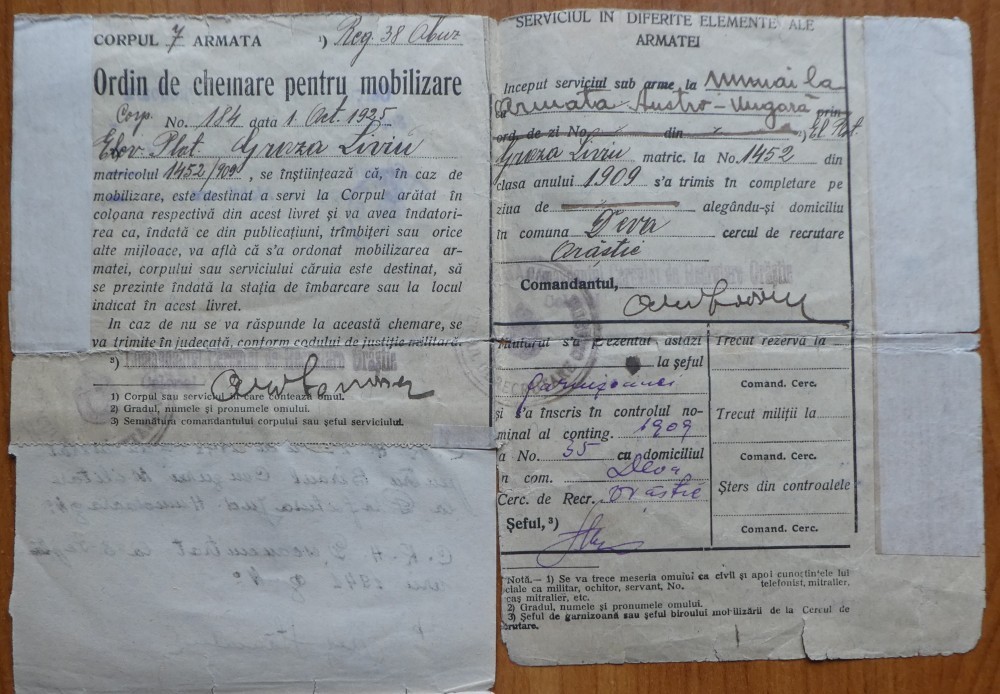 CORPUL 7 ARMATA ¹) Reg 38 Obuz
Ordin de chemare pentru mobilizare
Corp. No. 184 data 1. Oct. 1925
Elev. Plot. Groza Liviu
matricolul 1452/909, se înștiințează că, în caz de
mobilizare, este destinat a servi la Corpul arătat în
coloana respectivă din acest livret și va avea îndatori-
rea ca, îndată ce din publicațiuni, trîmbițeri sau orice
alte mijloace, va află că s'a ordonat mobilizarea ar-
matei, corpului sau serviciului căruia este destinat, să
se prezinte îndată la stația de îmbarcare sau la locul
indicat în acest livret.
In caz de nu se va răspunde la această chemare, se
va trimite în judecată, conform codului de justiție militară.
³)
1) Corpul sau serviciul în care contează omul.
2) Gradul, numele și pronumele omului.
3) Semnătura comandantului corpului sau șeful serviciului.
SERVICIUL IN DIFERITE ELEMENTE ALE
ARMATEI
Inceput serviciul sub arme la numai la
Armata Austro-Ungară prin
ord. de zi No. din El. Plot.
Groza Liviu matric. la No. 1452 din
clasa anului 1909 s'a trimis în completare pe
ziua de alegându-și domiciliu
în comuna Deva cercul de recrutare
Orăștie
Comandantul,
s'a prezentat astăzi
la șeful
garnizoanei
și s'a înscris în controlul no-
minal al conting. 1909
a No. 35 cu domiciliul
n com. Deva
Cerc. de Recr. Orăștie
Șeful, ³)
Trecut rezervă la
Comand. Cerc.
Trecut miliții la
Comand. Cerc.
Șters din controalele
Comand. Cerc.
Notă.— 1) Se va trece meseria omului ca civil și apoi cunoștințele lui
ciale ca militar, ochitor, servant, No. telefonist, mitralier,
caș mitralier, etc.
2) Gradul, numele și pronumele omului.
3) Șeful de garnizoană sau șeful biroului mobilizării de la Cercul de
crutare.